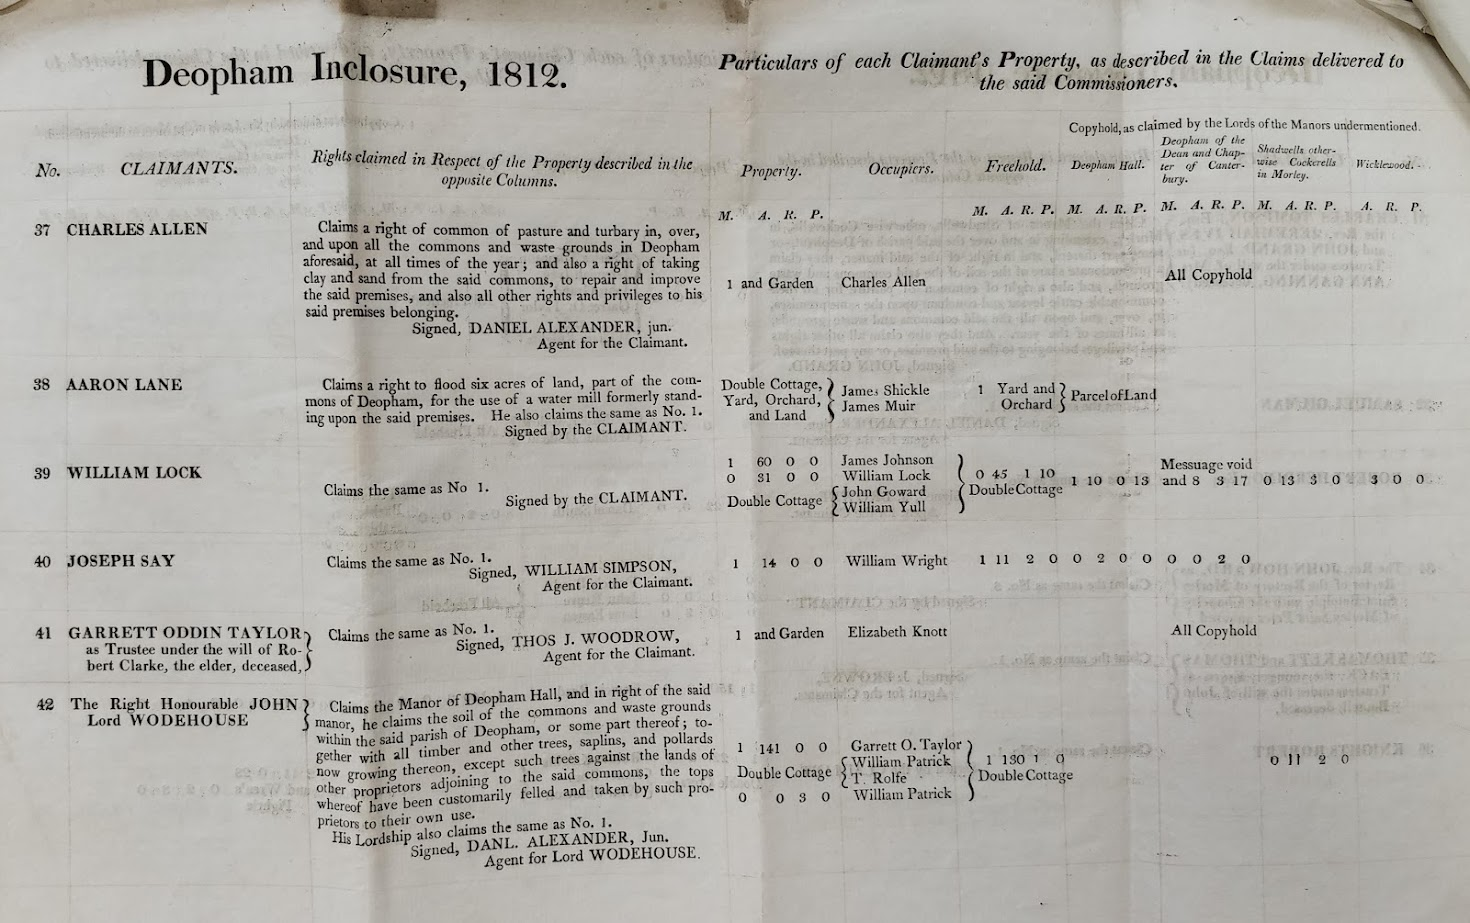 Deopham Inclosure, 1812.
Particulars of each Claimant's Property, as described in the Claims delivered to
the said Commissioners.
Copyhold, as claimed by the Lords of the Manors undermentioned.
No. CLAIMANTS. Rights claimed in Respect of the Property described in the
opposite Columns.
Property. Occupiers. Freehold. Deopham Hall.
Deopham of the
Dean and Chap-
ter of Canter-
bury.
Shadwells other-
wise Cockerells
in Morley.
Wicklewood.
M. A. R. P. M. A. R. P. M. A. R. P. M. A. R. P. M. A. R. P. A. R. P.
37 CHARLES ALLEN
Claims a right of common of pasture and turbary in, over,
and upon all the commons and waste grounds in Deopham
aforesaid, at all times of the year; and also a right of taking
clay and sand from the said commons, to repair and improve
the said premises, and also all other rights and privileges to his
said premises belonging.
Signed, DANIEL ALEXANDER, jun.
Agent for the Claimant.
1 and Garden Charles Allen All Copyhold
38 AARON LANE
Claims a right to flood six acres of land, part of the com-
mons of Deopham, for the use of a water mill formerly stand-
ing upon the said premises. He also claims the same as No. 1.
Signed by the CLAIMANT.
Double Cottage,
Yard, Orchard,
and Land
James Shickle
James Muir
1 Yard and
Orchard
Parcel of Land
39 WILLIAM LOCK
Claims the same as No 1.
Signed by the CLAIMANT.
1 60 0 0 James Johnson
0 31 0 0 William Lock
Double Cottage
John Goward
William Yull
0 45 1 10
Double Cottage
1 10 0 13
Messuage void
and 8 3 17
0 13 3 0
3 0 0
40 JOSEPH SAY
Claims the same as No. 1.
Signed, WILLIAM SIMPSON,
Agent for the Claimant.
1 14 0 0 William Wright 1 11 2 0 0 2 0 0 0 0 2 0
41 GARRETT ODDIN TAYLOR
as Trustee under the will of Ro-
bert Clarke, the elder, deceased,
Claims the same as No. 1.
Signed, THOS J. WOODROW,
Agent for the Claimant.
1 and Garden Elizabeth Knott All Copyhold
42 The Right Honourable JOHN
Lord WODEHOUSE
Claims the Manor of Deopham Hall, and in right of the said
manor, he claims the soil of the commons and waste grounds
within the said parish of Deopham, or some part thereof; to-
gether with all timber and other trees, saplins, and pollards
now growing thereon, except such trees against the lands of
other proprietors adjoining to the said commons, the tops
whereof have been customarily felled and taken by such pro-
prietors to their own use.
His Lordship also claims the same as No. 1.
Signed, DANL. ALEXANDER, Jun.
Agent for Lord WODEHOUSE.
1 141 0 0 Garrett O. Taylor
Double Cottage
William Patrick
T. Rolfe
0 0 3 0 William Patrick
1 130 1 0
Double Cottage
0 11 2 0